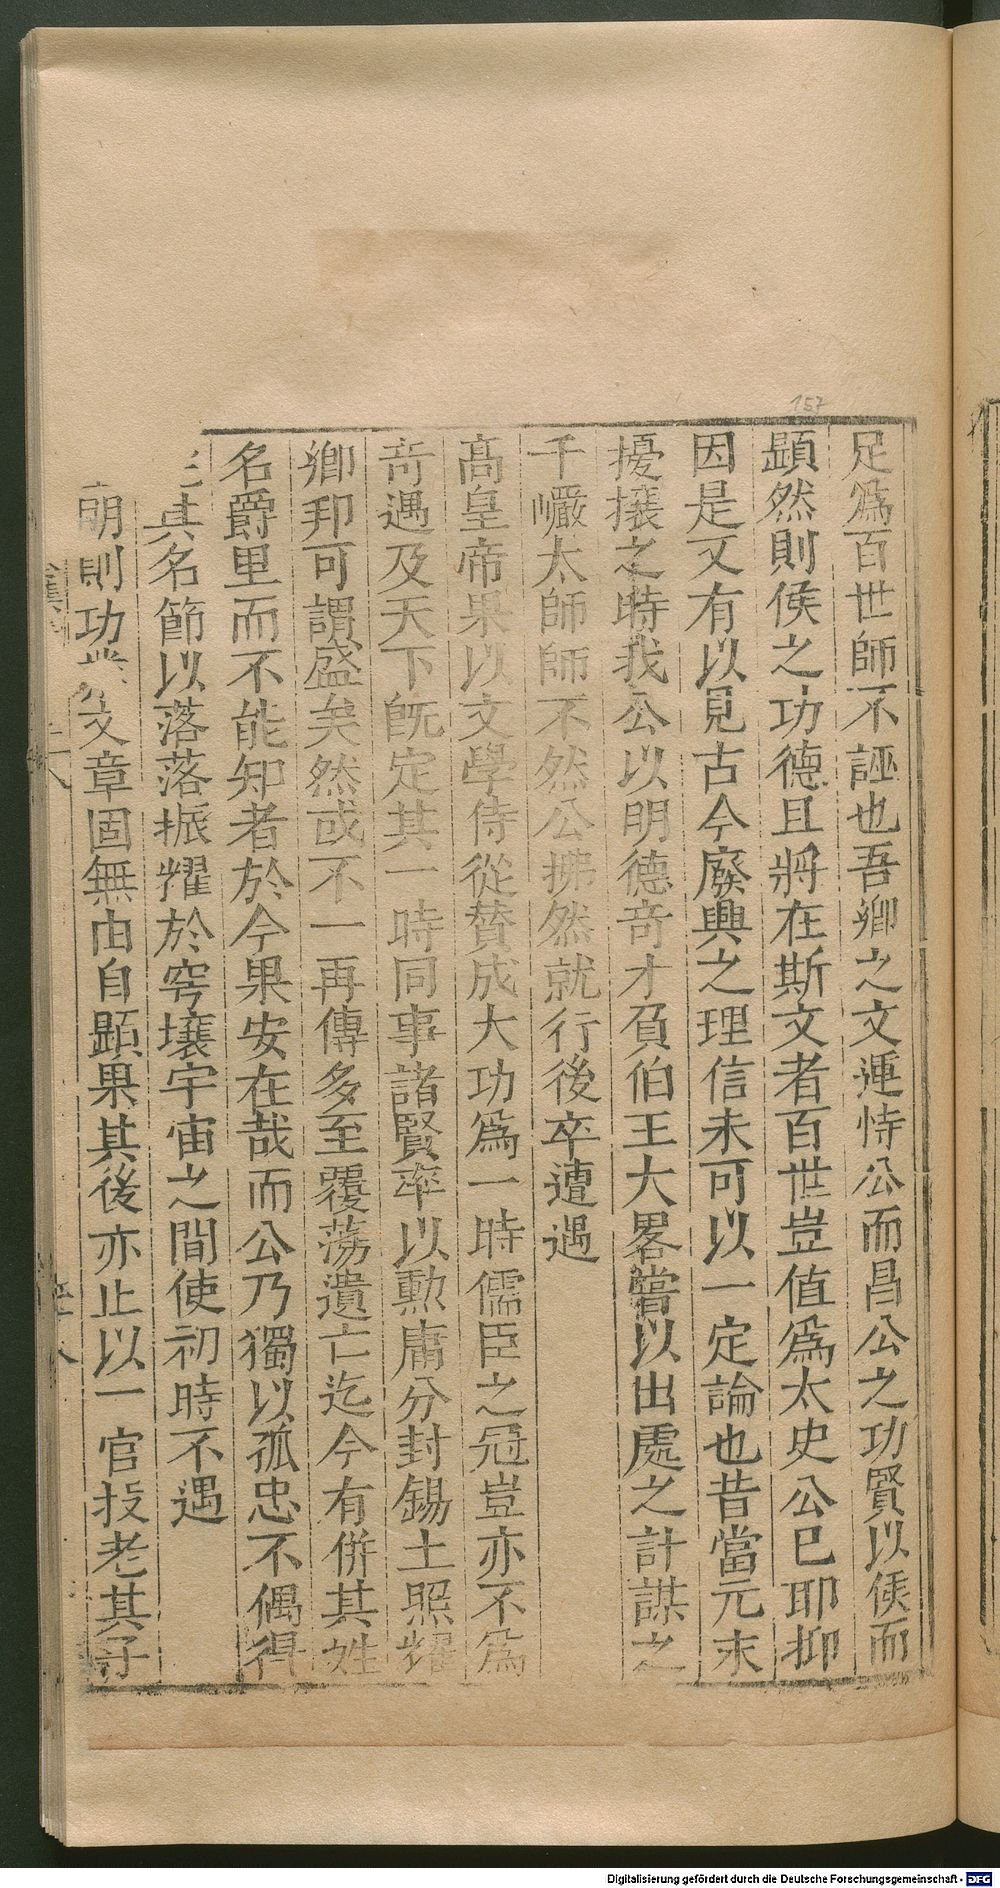 157
足爲百世師不誣也吾鄉之文運恃公而昌公之功賢以侯而
顯然則侯之功德且將在斯文者百世豈值爲太史公已耶抑
因是又有以見古今廢興之理信未可以一定論也昔當元末
擾攘之時我公以明德奇才負伯王大畧嘗以出處之計謀之
千巗太師師不然公拂然就行後卒遭遇
髙皇帝果以文學侍從贊成大功爲一時儒臣之冠豈亦不爲
奇遇及天下旣定其一時同事諸賢率以勲庸分封錫土照耀
鄉邦可謂盛矣然或不一再傳多至覆蕩遺亡迄今有併其姓
名爵里而不能知者於今果安在哉而公乃獨以孤忠不偶得
其名節以落落振耀於穹壤宇宙之間使初時不遇
朝則功業文章固無由自顯果其後亦止以一官投老其子
Digitalisierung gefördert durch die Deutsche Forschungsgemeinschaft - DFG